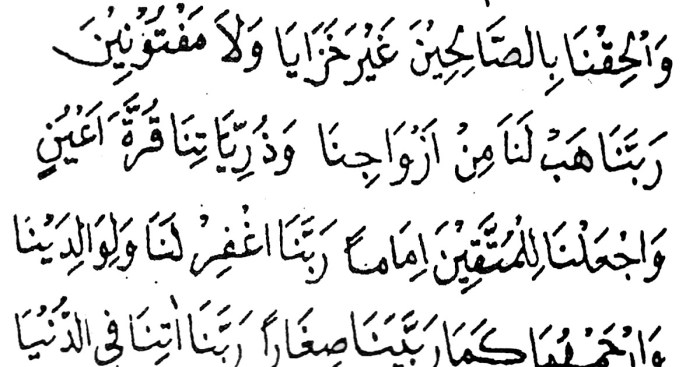 وَاَلْحِقْنَا بِالصَّالِحِيْنَ غَيْرَ خَزَايَا وَلَا مَفْتُوْنِيْنَ
رَبَّنَا هَبْ لَنَا مِنْ اَزْوَاجِنَا وَذُرِّيَّاتِنَا قُرَّةَ اَعْيُنٍ
وَاجْعَلْنَا لِلْمُتَّقِيْنَ اِمَامًا رَبَّنَا اغْفِرْ لَنَا وَلِوَالِدَيْنَا
وَارْحَمْهُمَا كَمَا رَبَّيَنَا صِغَارًا رَبَّنَا اٰتِنَا فِى الدُّنْيَا